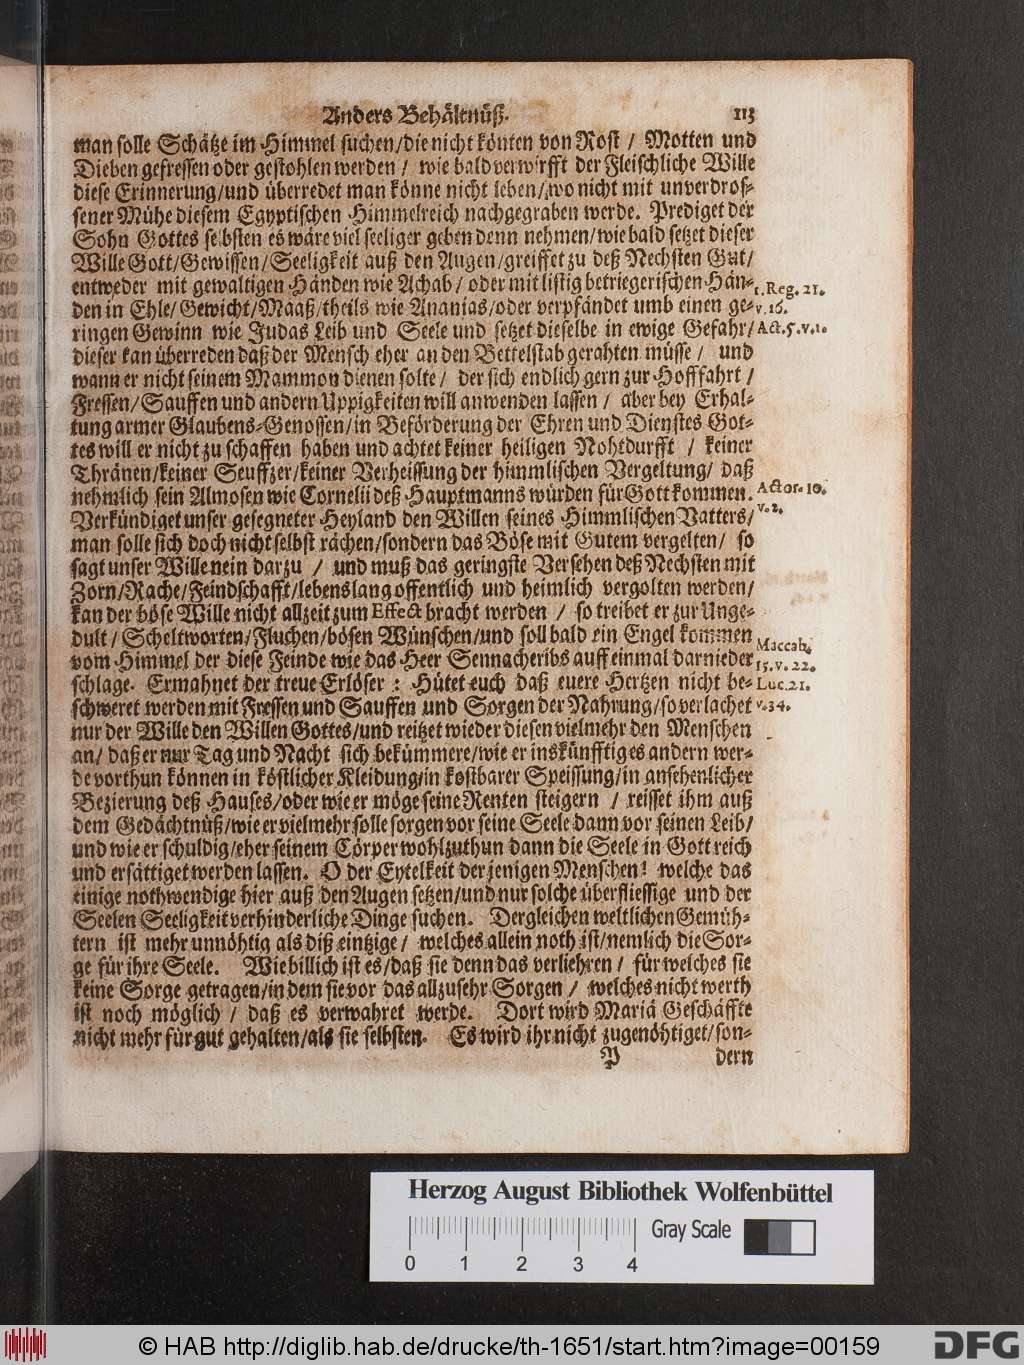 Anders Behältnüß. 113
man solle Schätze im Himmel suchen/die nicht könten von Rost / Motten und
Dieben gefressen oder gestohlen werden / wie bald verwirfft der Fleischliche Wille
diese Erinnerung/und überredet man könne nicht leben/wo nicht mit unverdros-
sener Mühe diesem Egyptischen Himmelreich nachgegraben werde. Prediget der
Sohn Gottes selbsten es wäre viel seeliger geben denn nehmen/wie bald setzet dieser
Wille Gott/Gewissen/Seeligkeit auß den Augen/greiffet zu deß Nechsten Gut/
entweder mit gewaltigen Händen wie Achab/ oder mit listig betriegerischen Hän- 1. Reg. 21.
den in Ehle/Gewicht/Maaß/theils wie Ananias/oder verpfändet umb einen ge- v. 16.
ringen Gewinn wie Judas Leib und Seele und setzet dieselbe in ewige Gefahr/ Act. 5. v. 1.
dieser kan überreden daß der Mensch eher an den Bettelstab gerahten müsse / und
wann er nicht seinem Mammon dienen solte/ der sich endlich gern zur Hoffahrt /
Fressen/Sauffen und andern Uppigkeiten will anwenden lassen / aber bey Erhal-
tung armer Glaubens-Genossen/in Beförderung der Ehren und Dienstes Got-
tes will er nicht zu schaffen haben und achtet keiner heiligen Nohtdurfft / keiner
Thränen/keiner Seuffzer/keiner Verheissung der himmlischen Vergeltung/ daß
nehmlich sein Almosen wie Cornelii deß Hauptmanns würden für Gott kommen. Actor. 10.
Verkündiget unser gesegneter Heyland den Willen seines Himmlischen Vatters/ v. 2.
man solle sich doch nicht selbst rächen/sondern das Böse mit Gutem vergelten/ so
sagt unser Wille nein darzu / und muß das geringste Versehen deß Nechsten mit
Zorn/Rache/Feindschafft/lebenslang offentlich und heimlich vergolten werden/
kan der böse Wille nicht allzeit zum Effect bracht werden / so treibet er zur Unge-
dult/ Scheltworten/Fluchen/bösen Wünschen/und soll bald ein Engel kommen
vom Himmel der diese Feinde wie das Heer Sennacheribs auff einmal darnieder Maccab.
15. v. 22.
schlage. Ermahnet der treue Erlöser : Hütet euch daß euere Hertzen nicht be- Luc. 21.
schweret werden mit Fressen und Sauffen und Sorgen der Nahrung/so verlachet v. 34.
nur der Wille den Willen Gottes/und reitzet wieder diesen vielmehr den Menschen
an/ daß er nur Tag und Nacht sich bekümmere/wie er inskünfftig es andern wer-
de vorthun können in köstlicher Kleidung/in kostbarer Speissung/in ansehenlicher
Bezierung deß Hauses/oder wie er möge seine Renten steigern / reisset ihm auß
dem Gedächtnüß/wie er vielmehr solle sorgen vor seine Seele dann vor seinen Leib/
und wie er schuldig/eher seinem Cörper wohlzuthun dann die Seele in Gott reich
und ersättiget werden lassen. O der Eytelkeit der jenigen Menschen! welche das
einige nothwendige hier auß den Augen setzen/und nur solche überfliessige und der
Seelen Seeligkeit verhinderliche Dinge suchen. Dergleichen weltlichen Gemüh-
tern ist mehr unnöhtig als diß eintzige/ welches allein noth ist/nemlich die Sor-
ge für ihre Seele. Wie billich ist es/daß sie denn das verliehren / für welches sie
keine Sorge getragen/in dem sie vor das allzusehr Sorgen / welches nicht werth
ist noch möglich / daß es verwahret werde. Dort wird Mariä Geschäffte
nicht mehr für gut gehalten/als sie selbsten. Es wird ihr nicht zugenöhtiget/son-
P dern
Herzog August Bibliothek Wolfenbüttel
Gray Scale
0 1 2 3 4
© HAB http://diglib.hab.de/drucke/th-1651/start.htm?image=00159
DFG